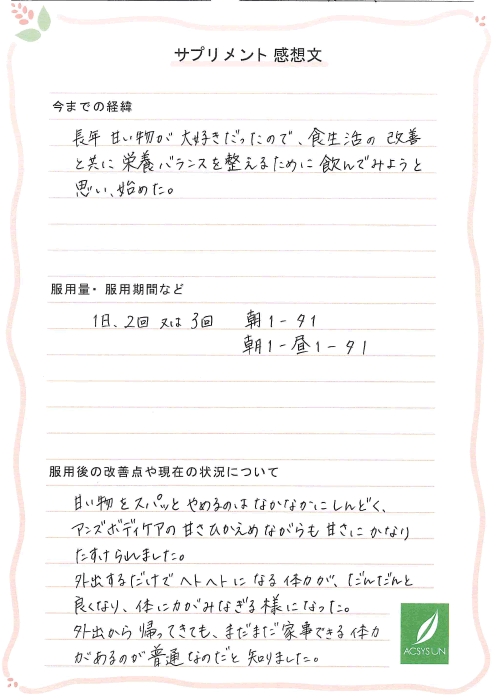 サプリメント 感想文
今までの経緯
長年 甘い物が 大好きだったので、食生活の 改善
と共に 栄養バランスを整えるために 飲んでみようと
思い、始めた。
服用量・服用期間など
1日、2回 又は 3回　朝1-夕1
朝1-昼1-夕1
服用後の改善点や現在の状況について
甘い物をスパッとやめるのはなかなかにしんどく、
アンズボディケアの甘さひかえめながらも甘さにかなり
たすけられました。
外出するだけでヘトヘトになる体力が、だんだんと
良くなり、体に力がみなぎる様になった。
外出から帰ってきても、まだまだ家事できる体力
があるのが普通なのだと知りました。
ACSYSUN